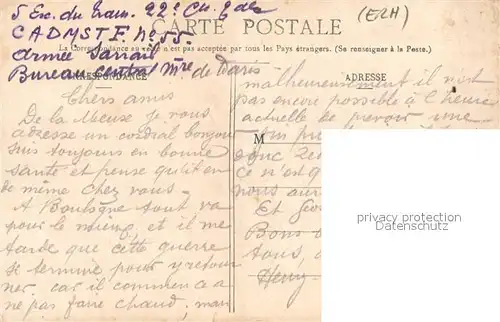 5 Esc. du Train. 22e Cie
CARTE POSTALE
(ERH)
CADMSTF. No 55.
La Correspondance au verso n'est pas acceptée par tous les Pays étrangers. (Se renseigner à la Poste.)
Armée Sarrail
Bureau central Mre de Paris
CORRESPONDANCE
ADRESSE
Chers amis
De la Meuse je vous
adresse un cordial bonjour
suis toujours en bonne
santé et pense qu'il en
de même chez vous.
A Boulogne tout va
pour le mieux, et il me
tarde que cette guerre
se termine pour y retour
ner. car il commence a
ne pas faire chaud, mais
malheureusement il n'est
pas encore possible à l'heure
actuelle de prévoir une
M
donc
ce n'est q
nous aur
Et
Bons
tous,
Henry
privacy protection
Datenschutz